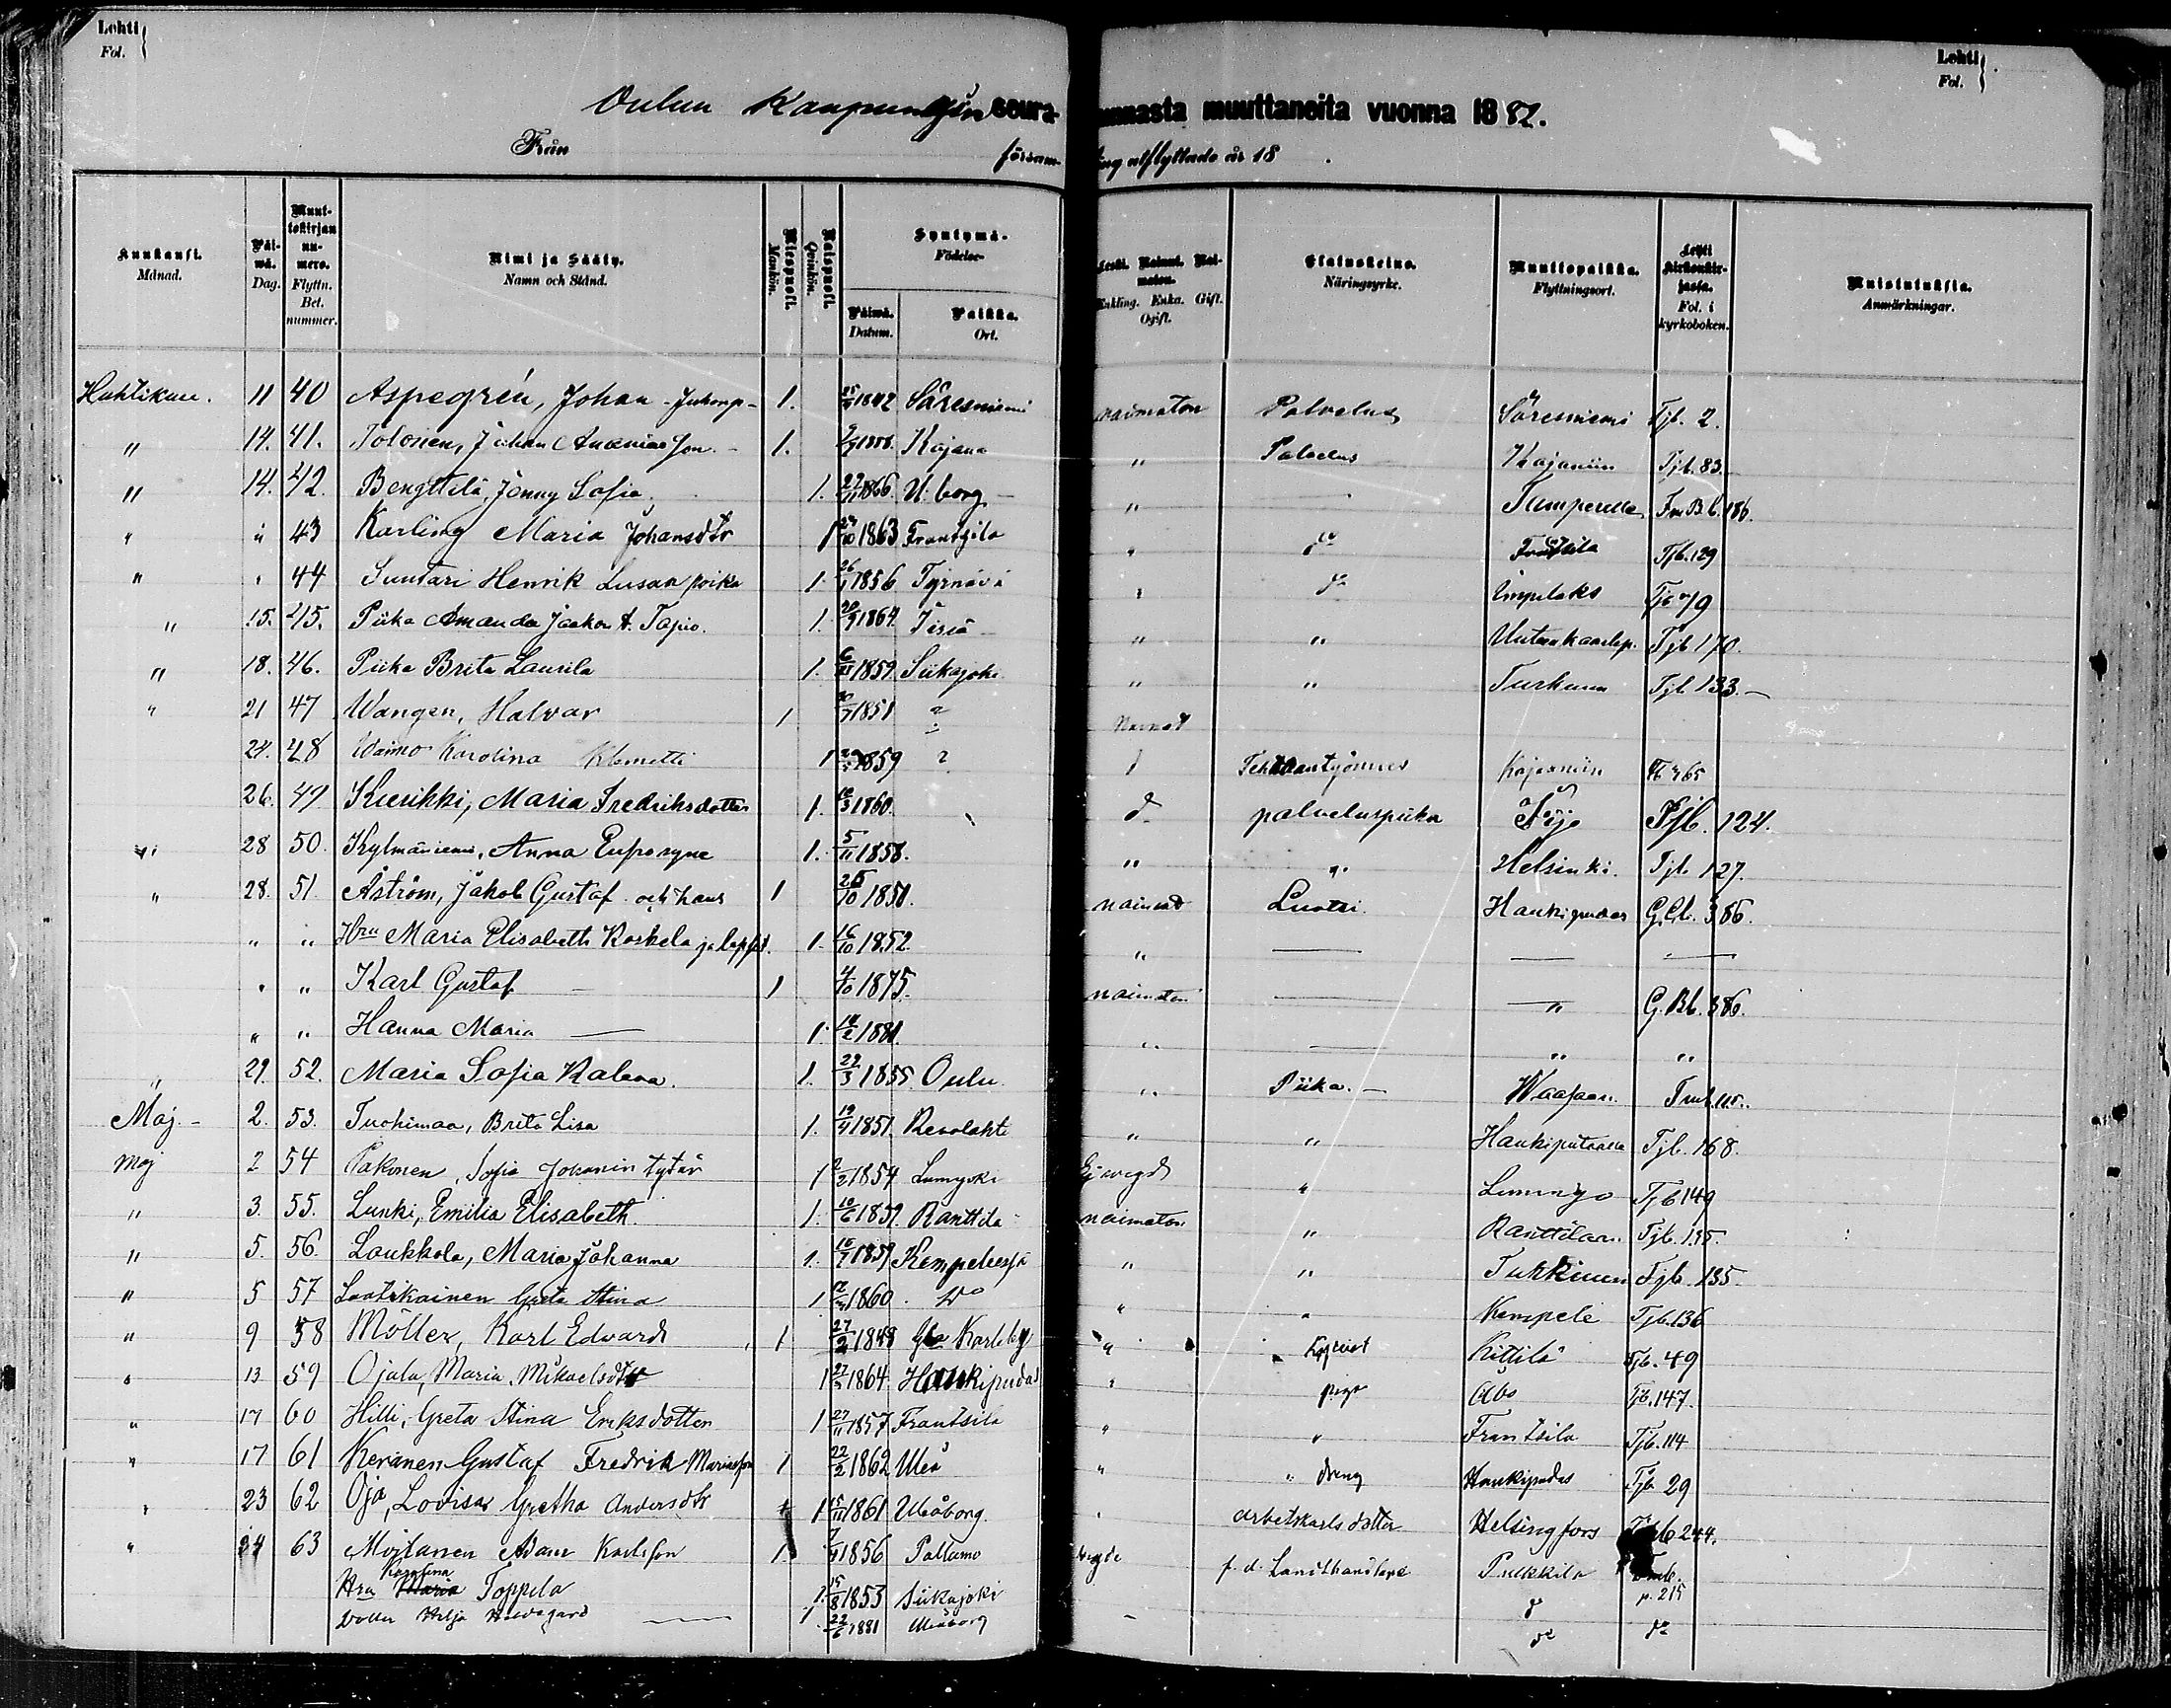 Lehti
Fol.
Lehti
Fol.
Oulun Kaupungin seurakunnasta muuttaneita vuonna 1882.
Från försam- ling utflyttade år 18 .
Kuukausi. Månad. Päiwä. Dag. Muuttokirjan numero. Flyttn. Bet. nummer. Nimi ja Sääty. Namn och Stånd. Miespuoli. Mankön. Naispuoli. Qvinkön. Syntymä- Födelse- Päiwä. Datum. Paikka. Ort. Leski. Nainut. Naimaton. Enkling. Enka. Gift. Ogift. Elatuskeino. Näringsyrke. Muuttopaikka. Flyttningsort. Lehti kirkonkirjassa. Fol. i kyrkoboken. Muistutuksia. Anmärkningar.
Huhtikuu. 11 40 Aspegrén, Johan 1. 25/ 1842 Säresniemi naimaton Palvelus Säresniemi Tjb. 2.
" 14. 41. Tolonen, Johan Ananias son. 1. 1858. Kajana " Palvelus Kajaniin Tjb. 83.
" 14. 42. Bengttilä, Jenny Sofia. 1. 27/11 1866. U:borg " Tampereelle F B.b. 186.
" " 43 Karling Maria Johansdtr 1 /10 1863 Frantzila " d:o Frantsila Tjb. 129
" " 44 Suutari Henrik Lusan poika 1. 26/1 1856 Tyrnävä " d:o Impilaks Tjb 79
" 15. 45. Piika Amanda Jaakon t. Tapio. 1. 20/9 1864 " " Uutenkaarlep. Tjb 170.
" 18. 46. Piika Brita Laurila 1. 6/ 1859 Siikajoki " " Turkuun Tjb 133.
" 21 47 Wangen, Halvar 1 /7 1851 ? Nainut
24. 48 Waimo Karolina Klemetti 1 1859 ? Tehtaantyömies Kajaaniin 365
26. 49 Kurikki, Maria Fredriksdotter 1. /3 1860. d palveluspiika Tjb. 124.
" 28 50. Kylmäniemi, Anna Euprosyne 1. 5/11 1858. " " Helsinki. Tjb. 127.
" 28. 51. Åström, Jakob Gustaf och hans 1 26/10 1851. nainut Luotsi. Haukipudas G.Cb. 386.
" " Hru Maria Elisabeth Koskela ja lapset. 1. 16/10 1852. " — — —
" " Karl Gustaf — 1 4/10 1875. naimaton — " G.Bb. 386.
" " Hanna Maria — 1. /2 1881. " — " "
" 29. 52. Maria Sofia Kaleva. 1. 29/3 1855. Oulu " Piika. — Waasaan. 115.
Maj. 2. 53. Tuohimaa, Brita Lisa 1. 19/ 1851. Revolahti " " Haukiputaalle Tjb. 168.
Maj 2 54 Pakonen, Sofia Johanin tytär 1 /2 1854 Lumijoki Ej vigd " Lumijo Tjb 149
" 3. 55. Lunki, Emilia Elisabeth. 1. /6 1859. Ranttila naimaton " Ranttilaan. Tjb. 135.
" 5. 56. Loukkola, Maria Johanna 1. 16/7 1859 Kempeleessä " " Turkkuun Tjb. 135.
" 5 57 Laatikainen Greta Stina 1 1860. D:o " " Kempele Tjb. 136
" 9 58 Möller, Karl Edvard 1 27/ 1848 Gla Karleby " Kittilä Tjb. 49
" 13 59 Ojala, Maria Mikaelsdtr 1 27/ 1864 Haukipudas " piga Åbo Tjb. 147.
" 17 60 Hilli, Greta Stina Eriksdotter 1 27/11 1857 Frantsila " " Frantsila Tjb. 114
" 17 61 Keränen Gustaf Fredrik Mariasson 1 22/2 1862 Uleå " " dreng Haukipudas Tjb 29
" 23 62 Oja, Lovisa Gretha Andersdtr 1 15/11 1861 Uleåborg. " arbetskarls dotter Helsingfors 244.
" 24 63 Moilanen Adam Karlsson 1. 1856 Paltamo vigde f.d. Landthandlare Pulkkila
Hru Karolina Toppila 1. 15/8 1853 Siikajoki d:o p. 215
Dotter Hilja Hildegard — 1 22/6 1881 Uleåborg — d:o d:o